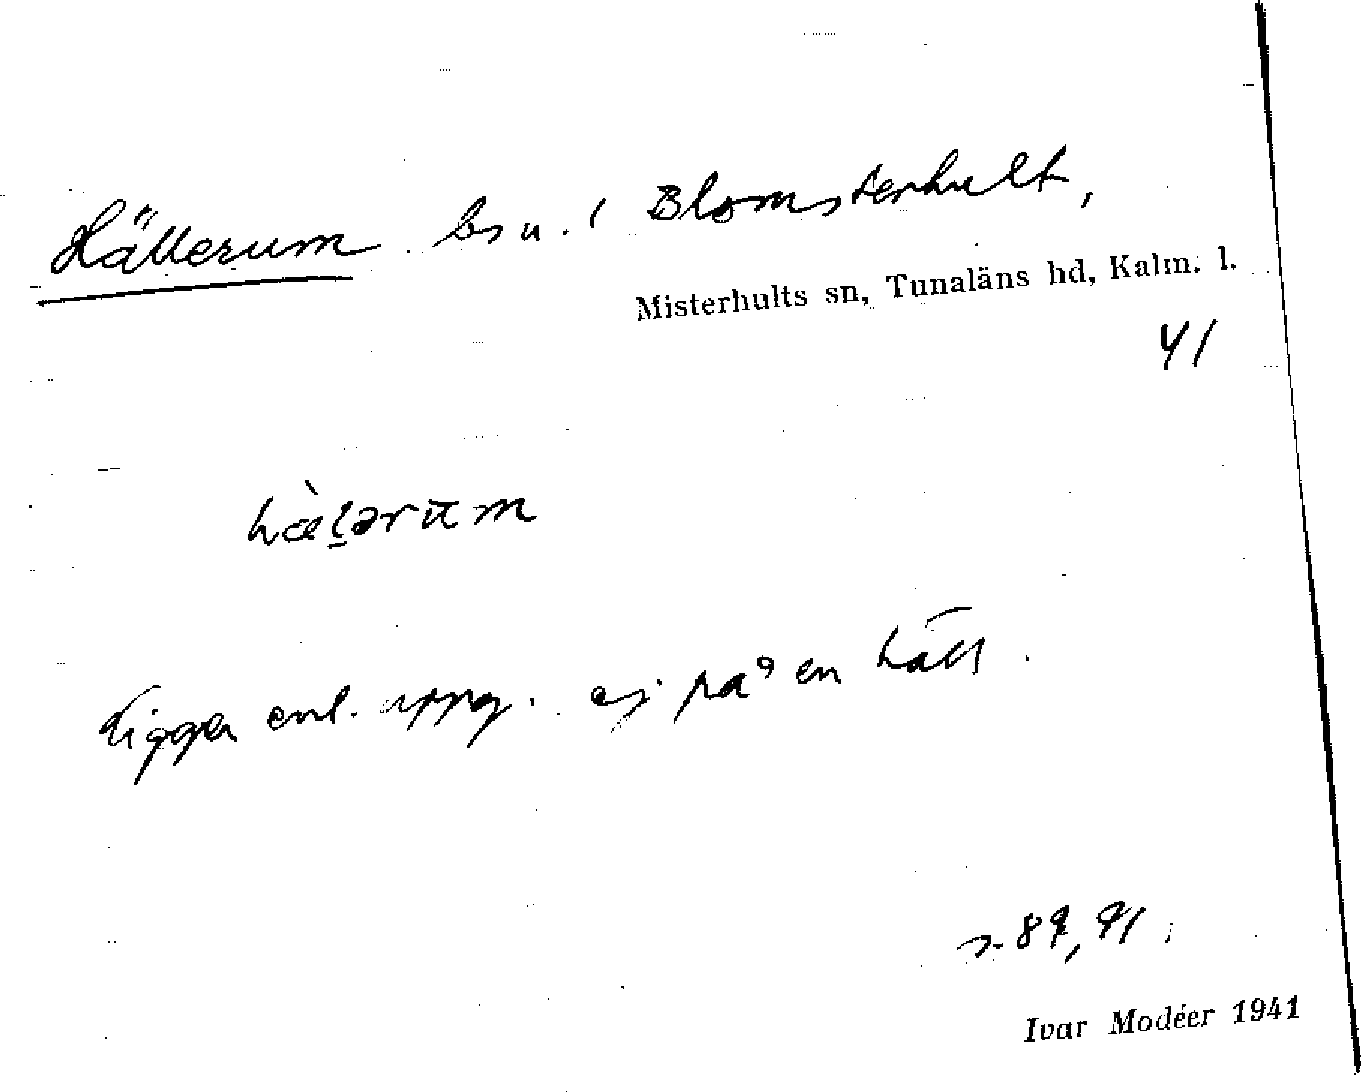 Hällerum bsn. i Blomsterhult,
Misterhults sn, Tunaläns hd, Kalm. l.
41
hæ̀lərum
Ligger enl. uppg. ej på en häll.
s. 89, 91
Ivar Modéer 1941